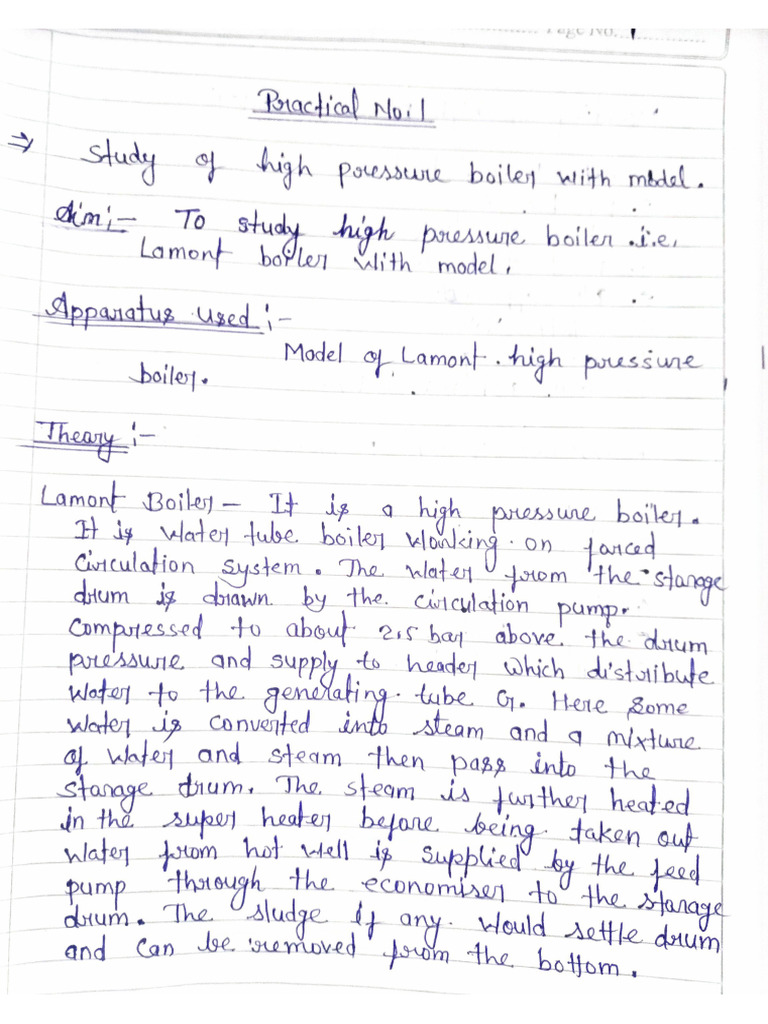 Page No.
Practical No:1
⇒ Study of high pressure boiler with model.
Aim:- To study high pressure boiler .i.e,
Lamont boiler with model.
Apparatus used :-
Model of Lamont. high pressure
boiler.
Theary :-
Lamont Boiler - It is a high pressure boiler.
It is water tube boiler working on farced
Circulation system. The water from the starage
drum is drawn by the circulation pump.
Compressed to about 2.5 bar above the drum
pressure and supply to header which distribute
water to the generating tube G. Here some
water is converted into steam and a mixture
of water and steam then pass into the
starage drum. The steam is further heated
in the super heater before being taken out
water from hot well is supplied by the feed
pump through the economiser to the starage
drum. The sludge if any would settle drum
and can be removed from the bottom.